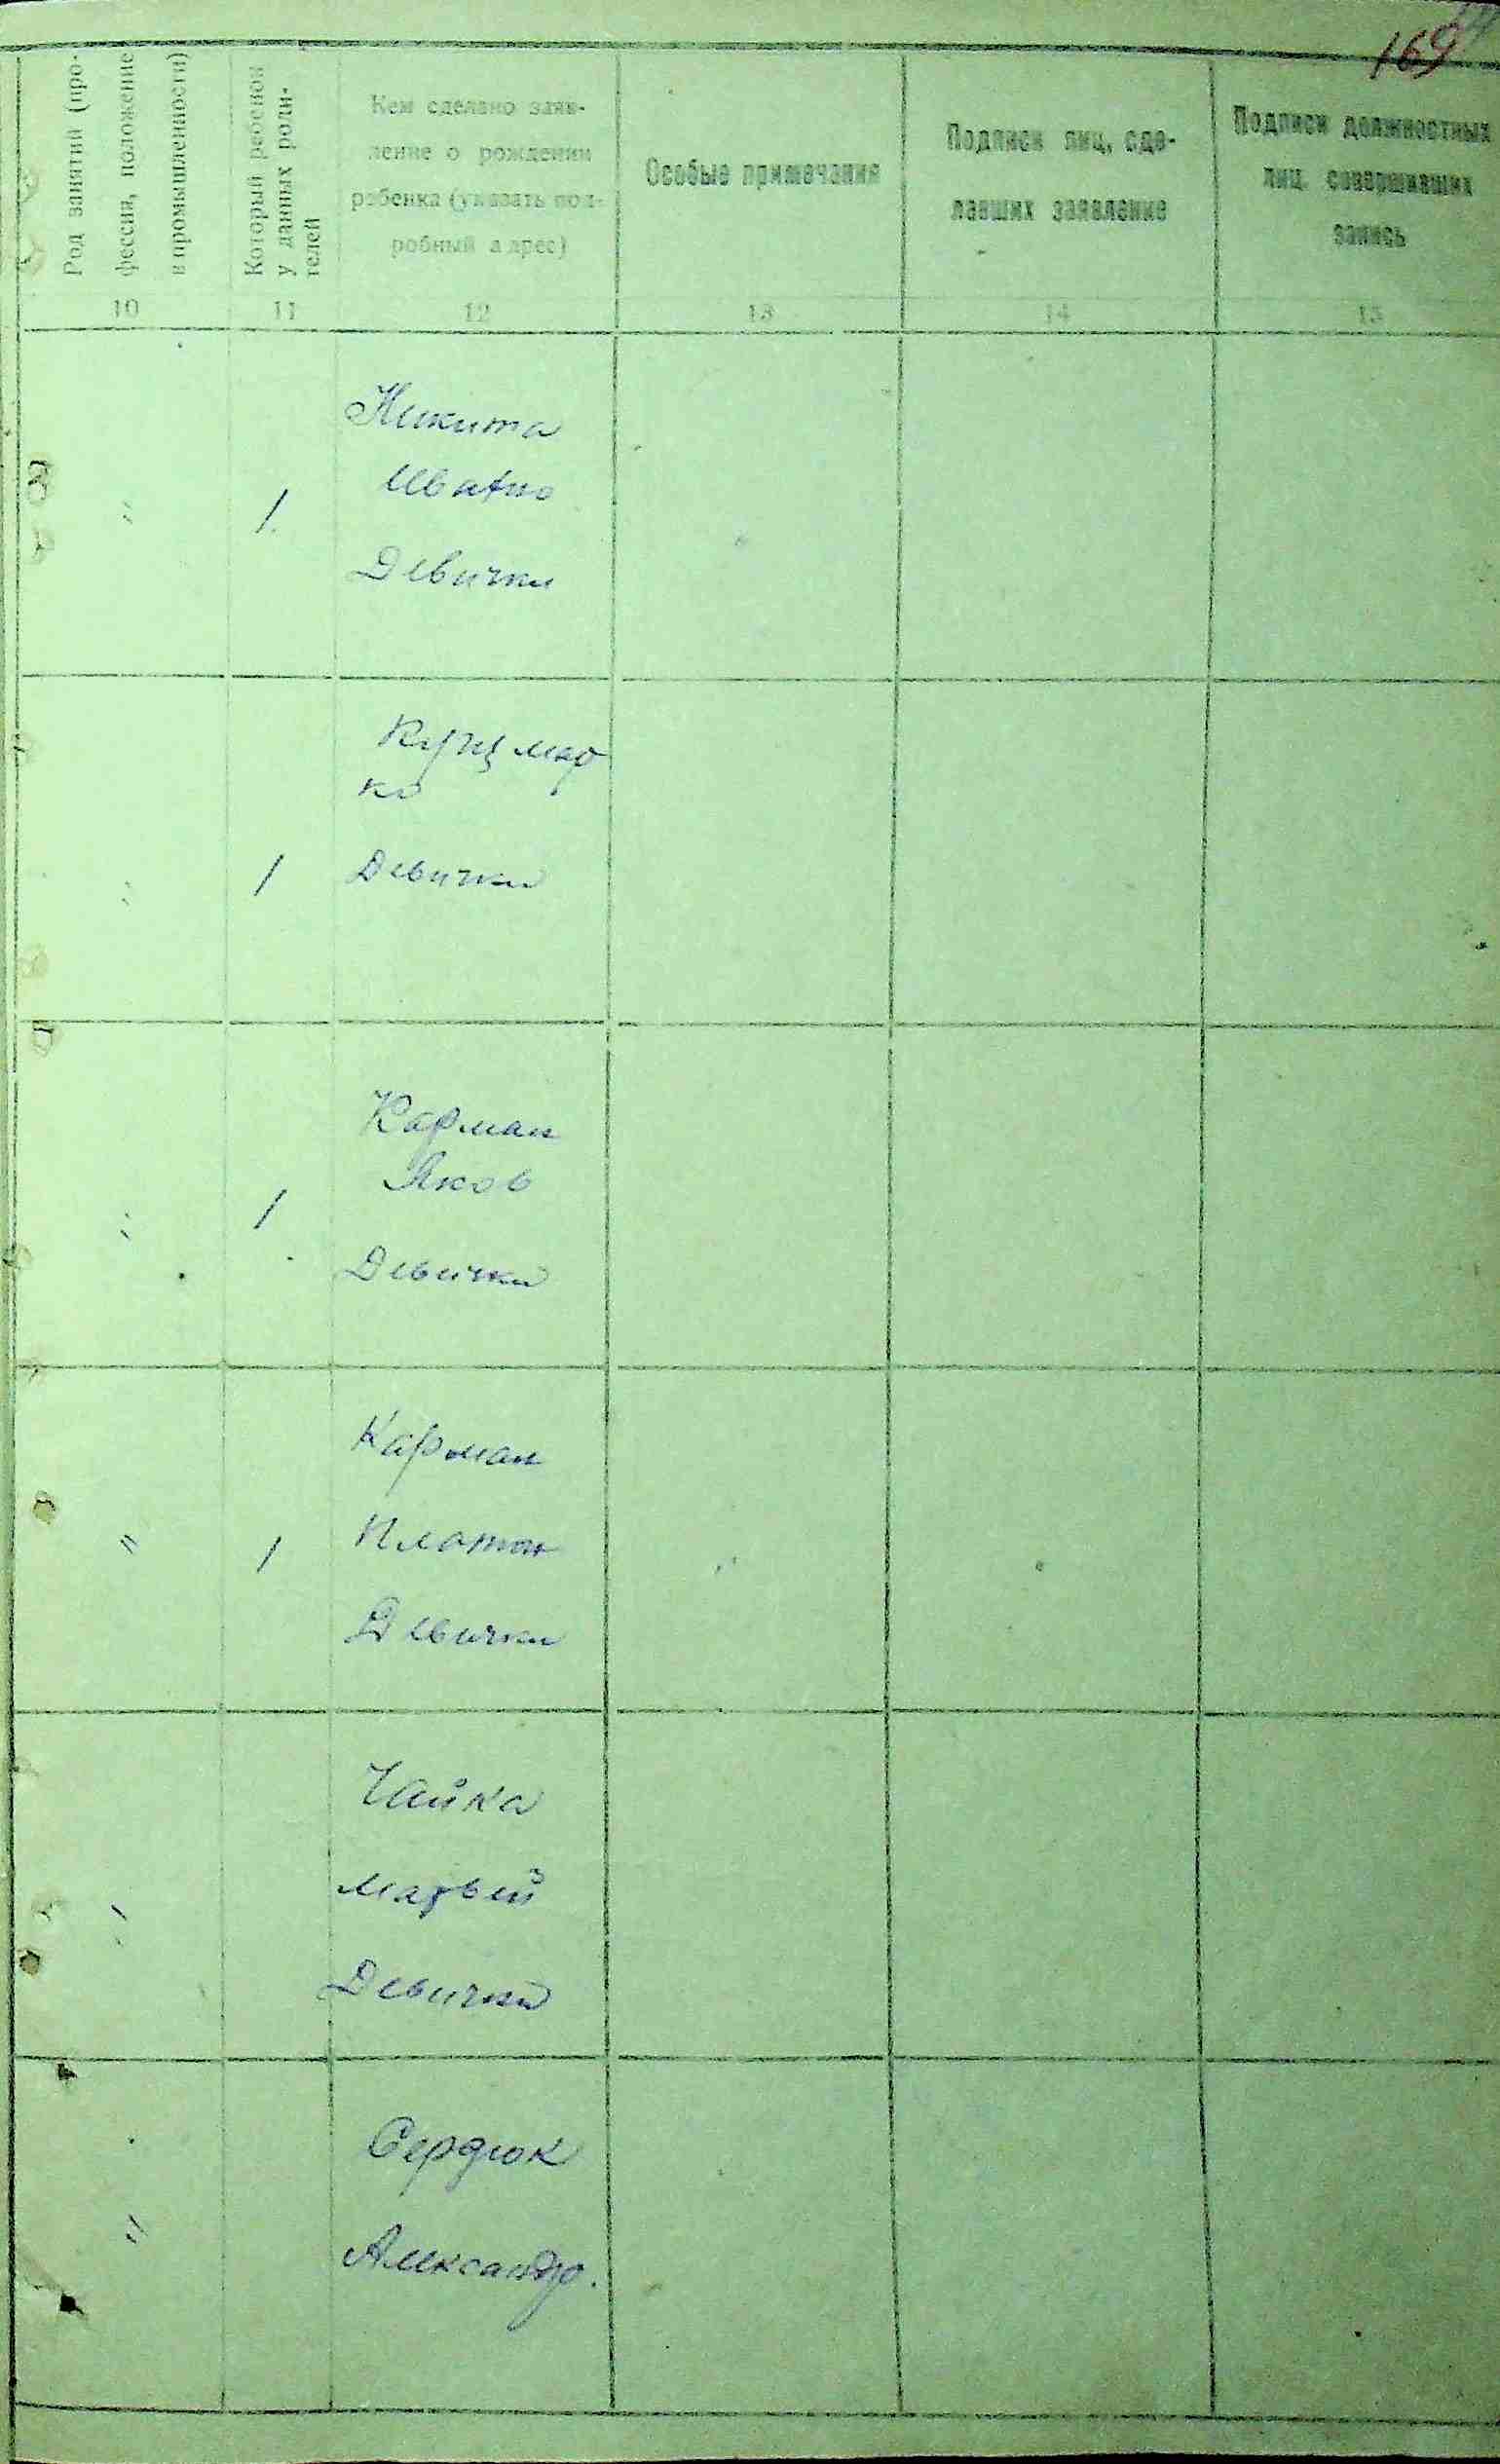 169
Род занятий (про-
фессия, положение
в промышленности)
Который ребенок
у данных роди-
телей
Кем сделано заяв-
ление о рождении
ребенка (указать под-
робный адрес)
Особые примечания
Подписи лиц, сде-
лавших заявление
Подписи должностных
лиц, совершивших
запись
10 11 12 13 14 15
Никита
" 1.
Девички
ко
" 1 Девички
Карман
Яков
" 1
Девички
Карман
" 1 Платон
Девички
Чайка
Матвей
"
Девички
Сердюк
"
Александр.